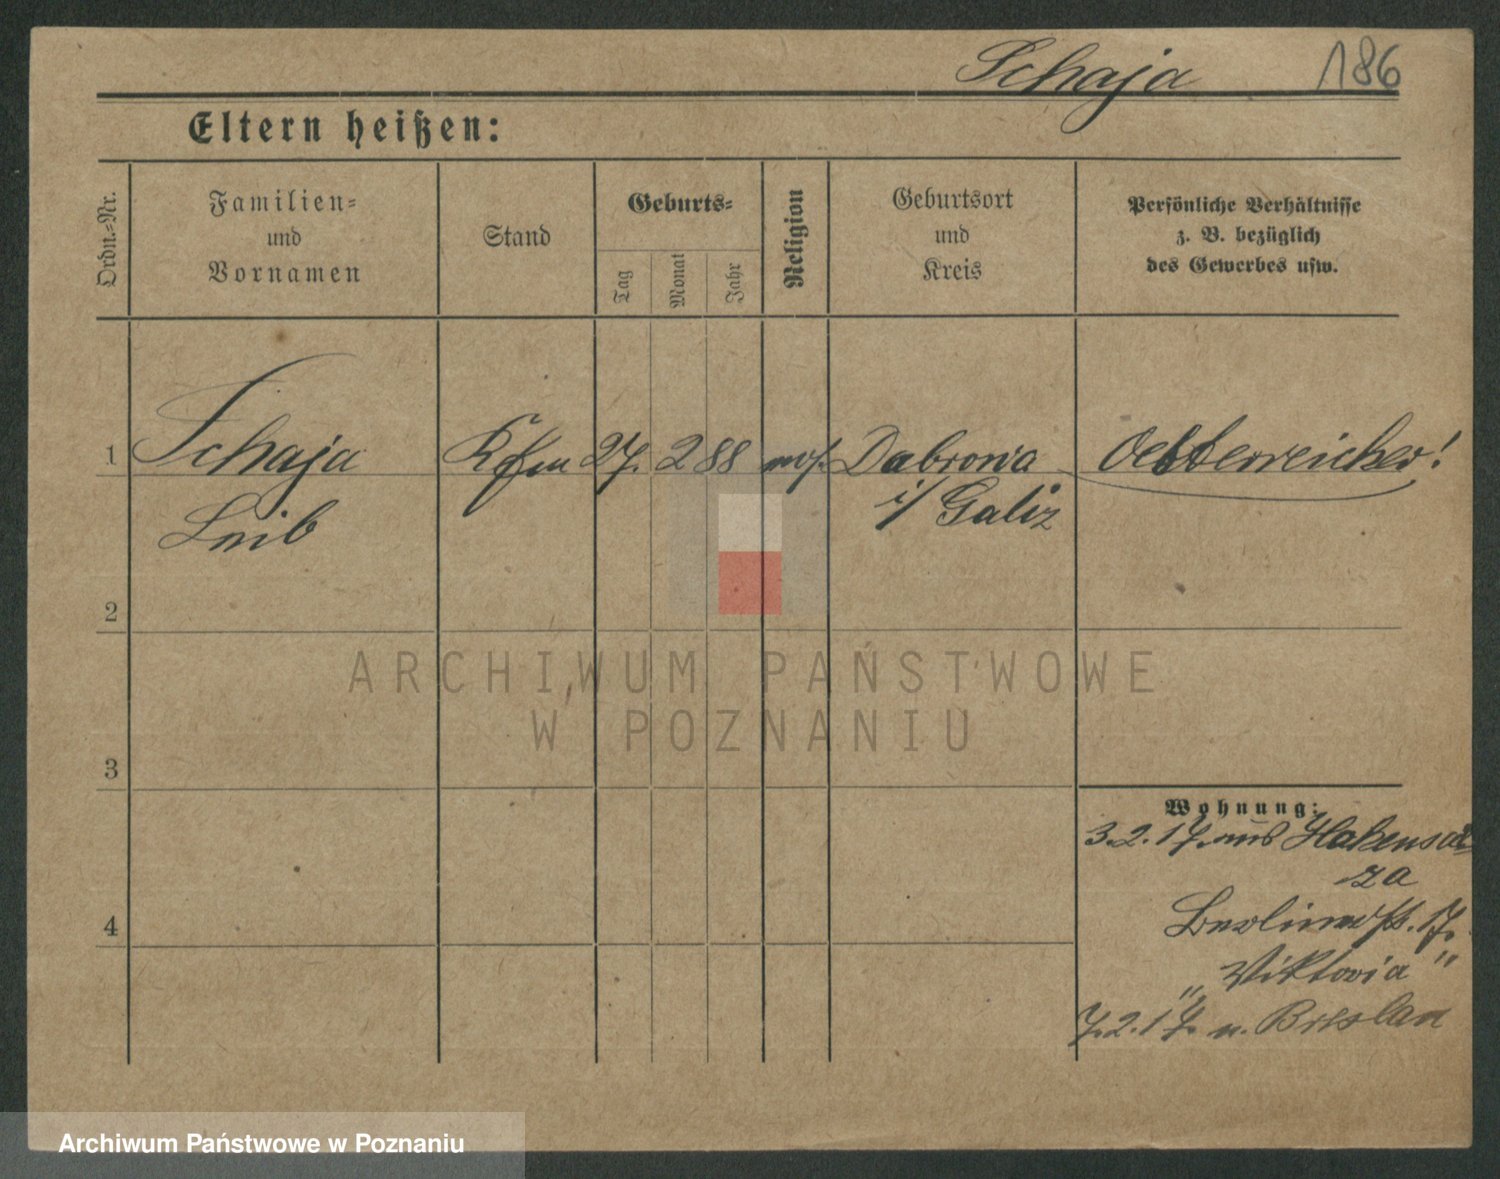 Schaja 186
Eltern heißen:
Ordn.-Nr.
Familien-
und
Vornamen
Stand
Geburts-
Tag
Monat
Jahr
Religion
Geburtsort
und
Kreis
Persönliche Verhältnisse
z. B. bezüglich
des Gewerbes usw.
1 Schaja Kfm 27. 2 88 mos. Dabrowa Oesterreicher!
Leib i/ Galiz
2
3
4
ARCHIWUM PAŃSTWOWE
W POZNANIU
Wohnung:
3.2.17. aus
Berlinerstr. 17.
"Viktoria"
7.2.17. n. Breslau
Archiwum Państwowe w Poznaniu